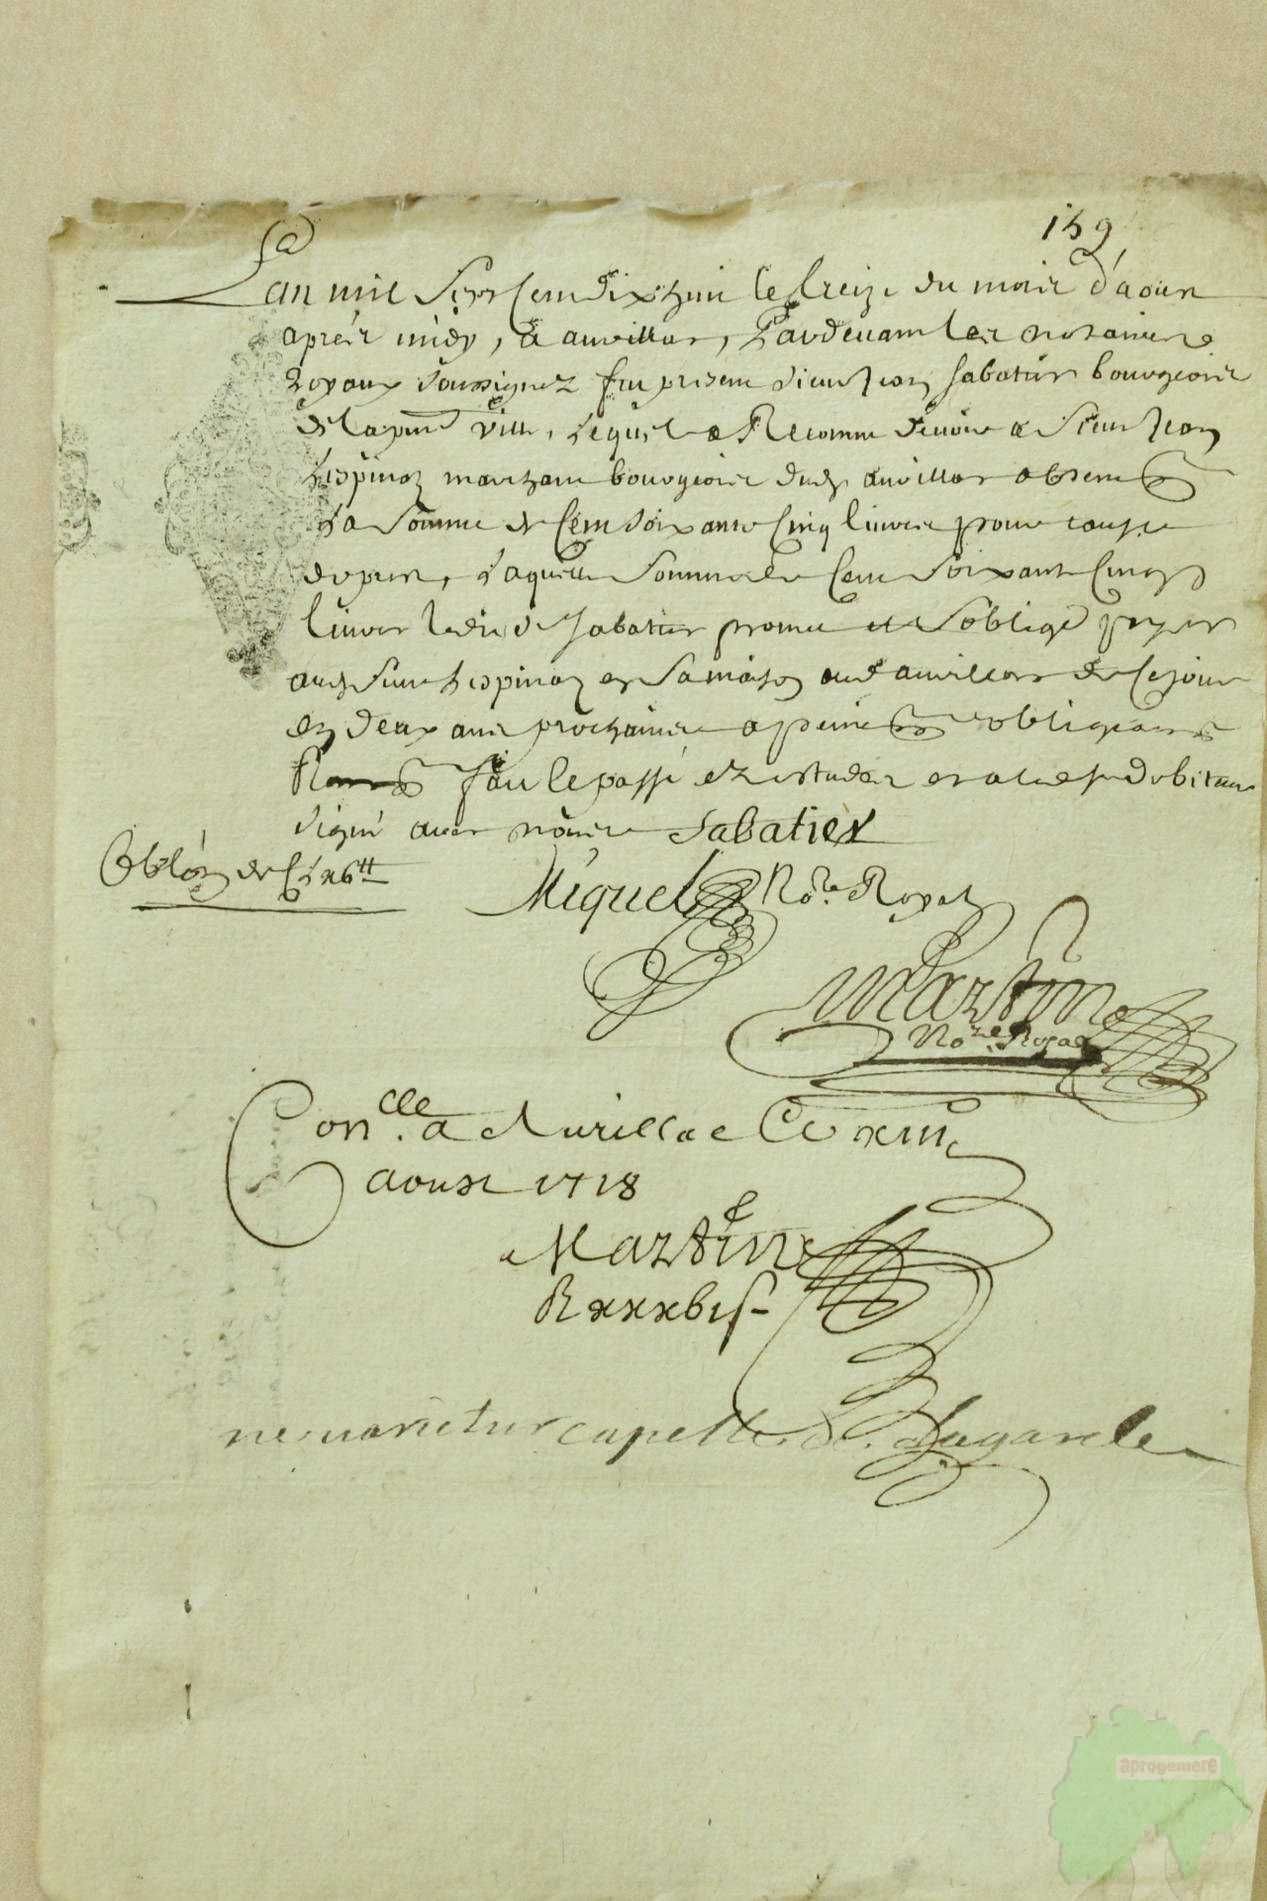 159
L'an mil sept cens dix huit le treize du mois d'aoust
apres midy, a aurillac, pardevant les notaires
royaux soussignez fut present sieur Jean Sabatier bourgeois
de la pnte ville, lequel a Reconnu devoir a sieur Jean
Lespinaz marchant bourgeois dud aurillac absent
La somme de cent soixante cinq livres pour cause
de prest, Laquelle somme de cent soixante cinq
livres ledit sr Sabatier promet et s'oblige payer
aud sieur Lespinaz en sa maison aud aurillac de ce jour
en deux ans prochains a peine obligeant
fait le passé ez estudes et a led sr debiteur
signé avec nous Sabatier
Oblon de CLX6tt
Miquel No.re Royal
Martin
No.re Royal
Con.lle a Aurillac Ce XIII
aoust 1718
Martin
R xxxbis
ne varietur capelle Lagarde
aprogemere